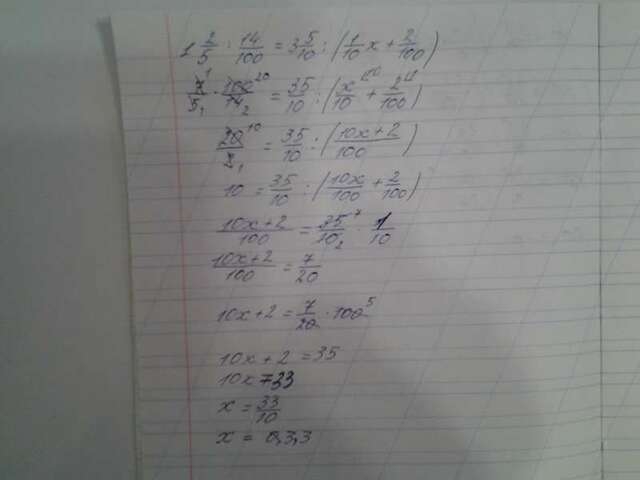 1 2/5 : 14/100 = 3 5/10 : (1/10 x + 2/100)
7/5 · 100/14 = 35/10 : (x/10 + 2/100)
20/2 = 35/10 : (10x+2/100)
10 = 35/10 : (10x/100 + 2/100)
10x+2/100 = 35/10 · 1/10
10x+2/100 = 7/20
10x+2 = 7/20 · 100
10x+2 = 35
10x = 33
x = 33/10
x = 3,3